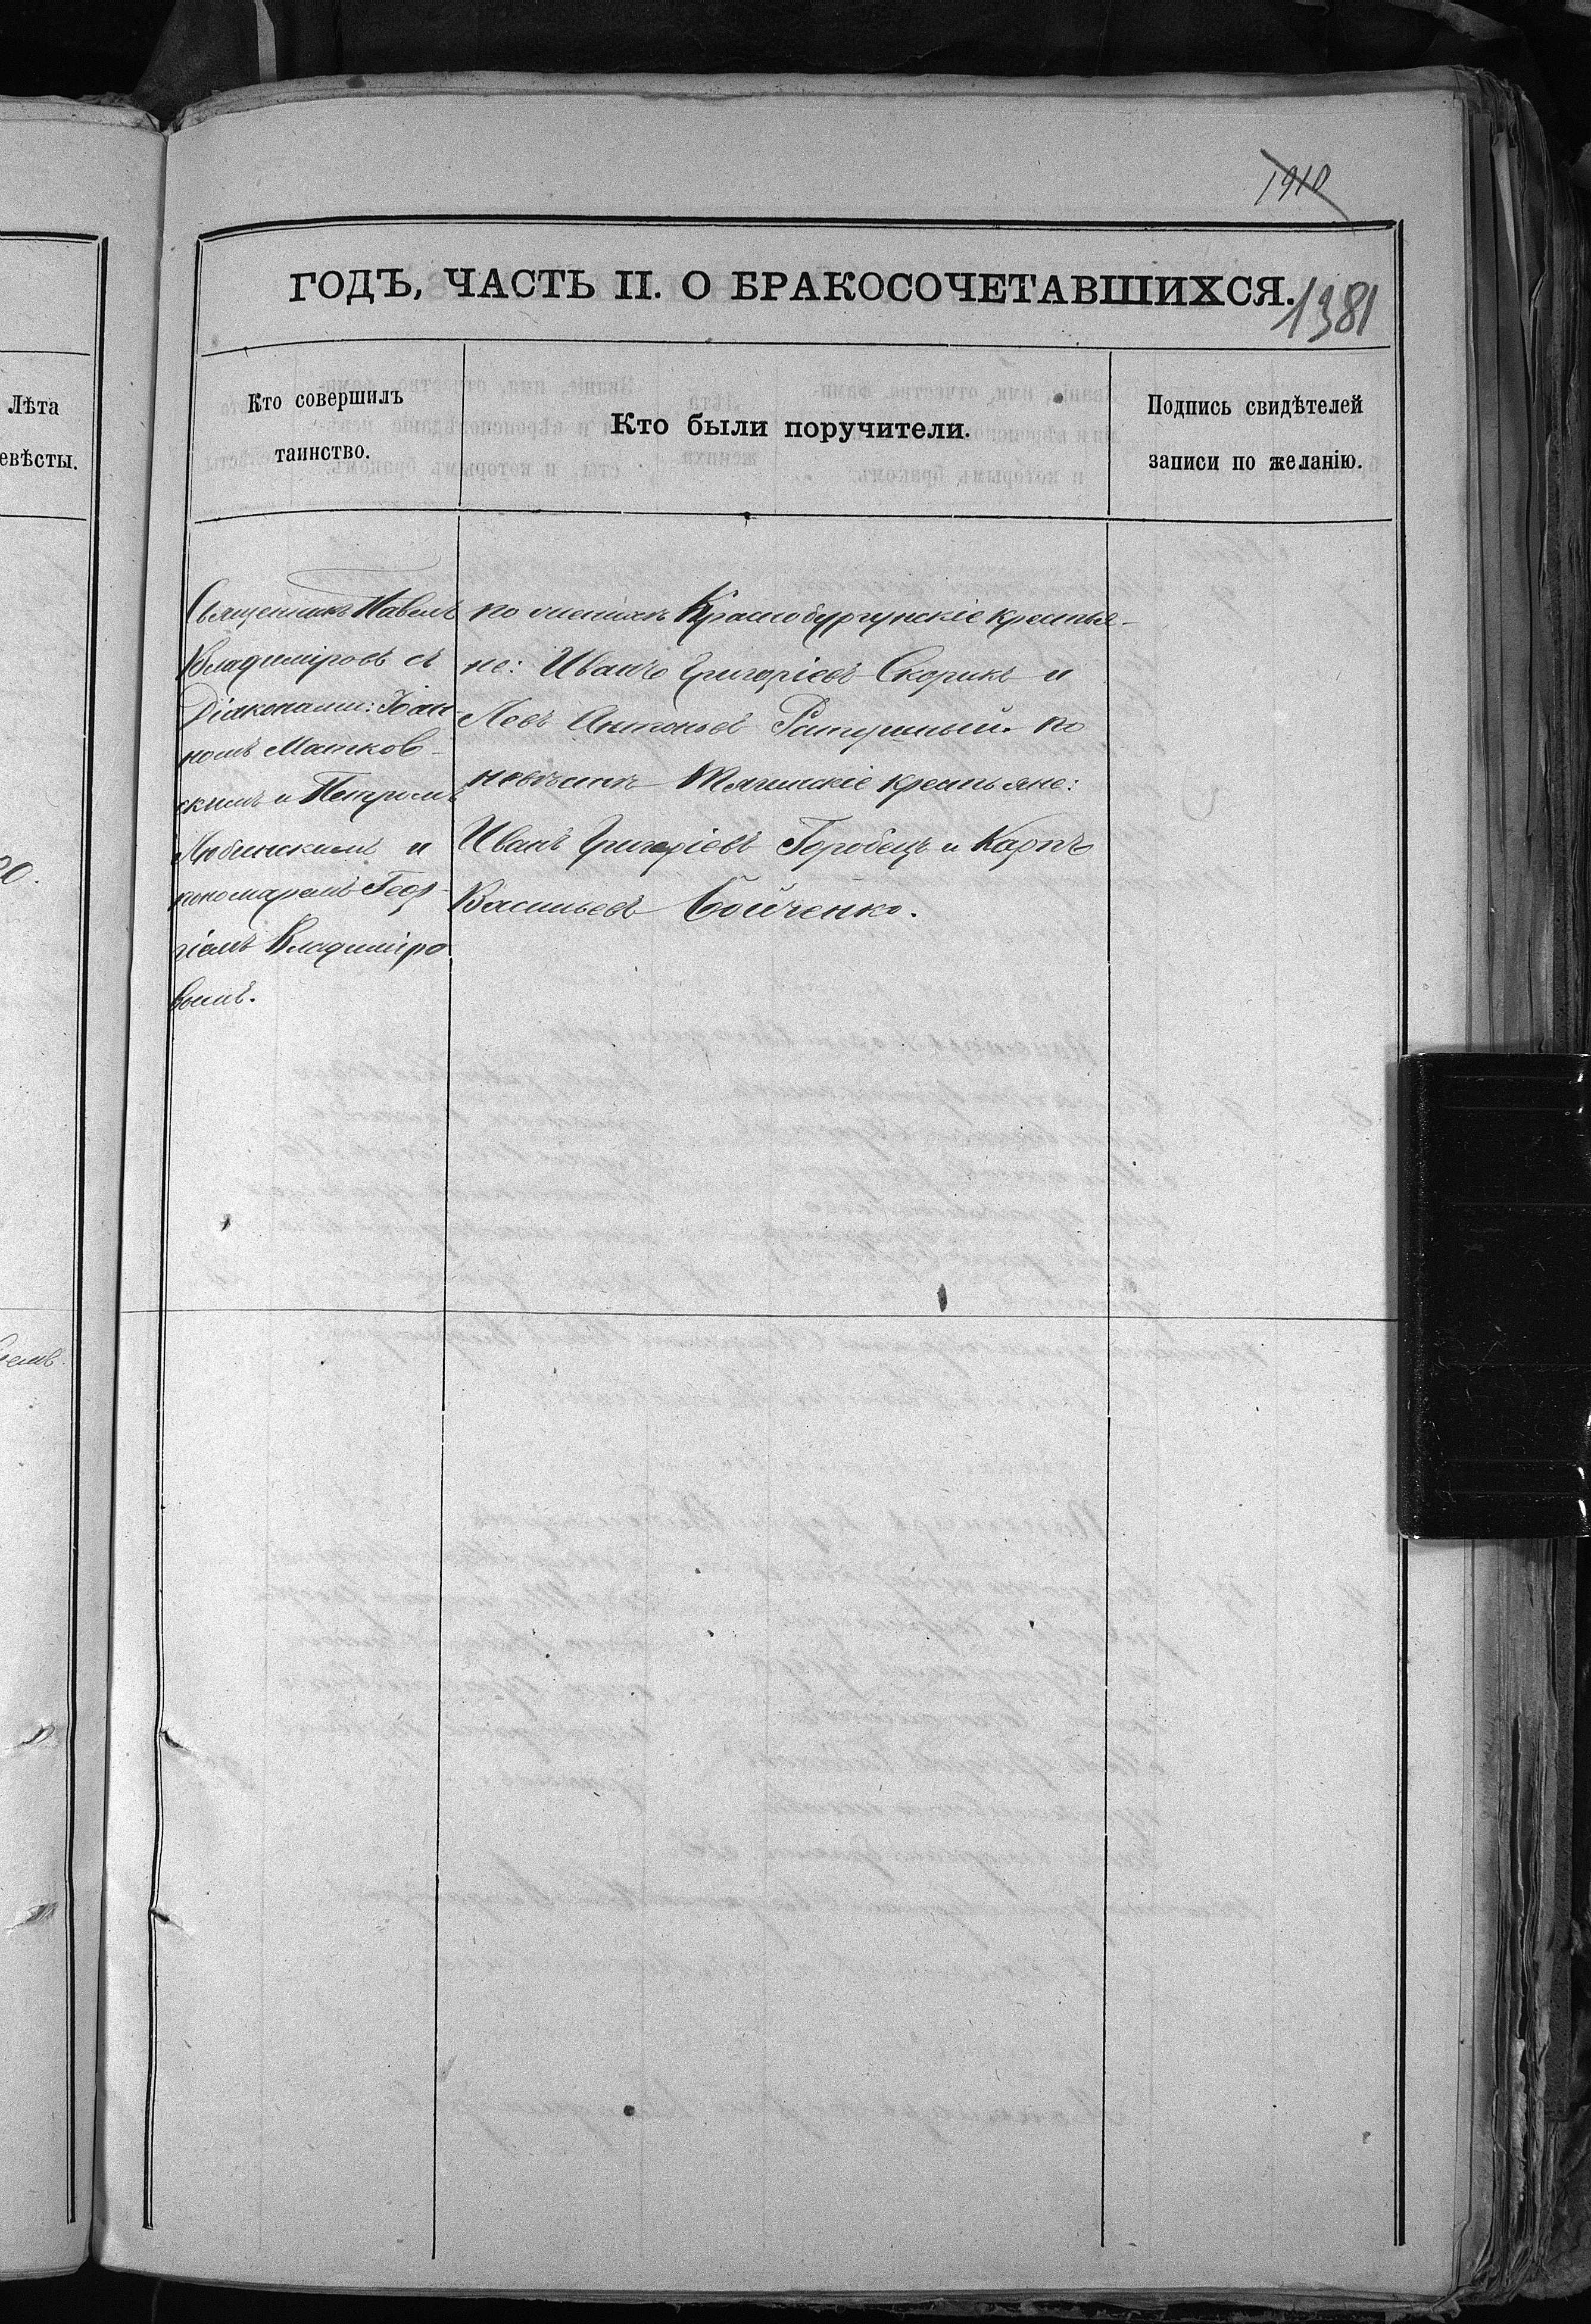 1910
ГОДЪ, ЧАСТЬ II. О БРАКОСОЧЕТАВШИХСЯ.
1381
Лѣта
евѣсты.
Кто совершилъ
таинство.
Кто были поручители.
Подпись свидѣтелей
записи по желанію.
Священникъ Павелъ
Владиміровъ съ
Діяконами: Іоан-
номъ Матков-
скимъ и Петромъ
Любинскимъ и
пономаремъ Геор-
гіемъ Владиміро
вымъ.
по женихѣ крестья-
не: Иванъ Григоріевъ Скорикъ и
Антоньевъ Ратушный. по
невѣстѣ Тягинскіе крестьяне:
Иванъ Григоріевъ Горобецъ и Карпъ
Васильевъ Бойченко.